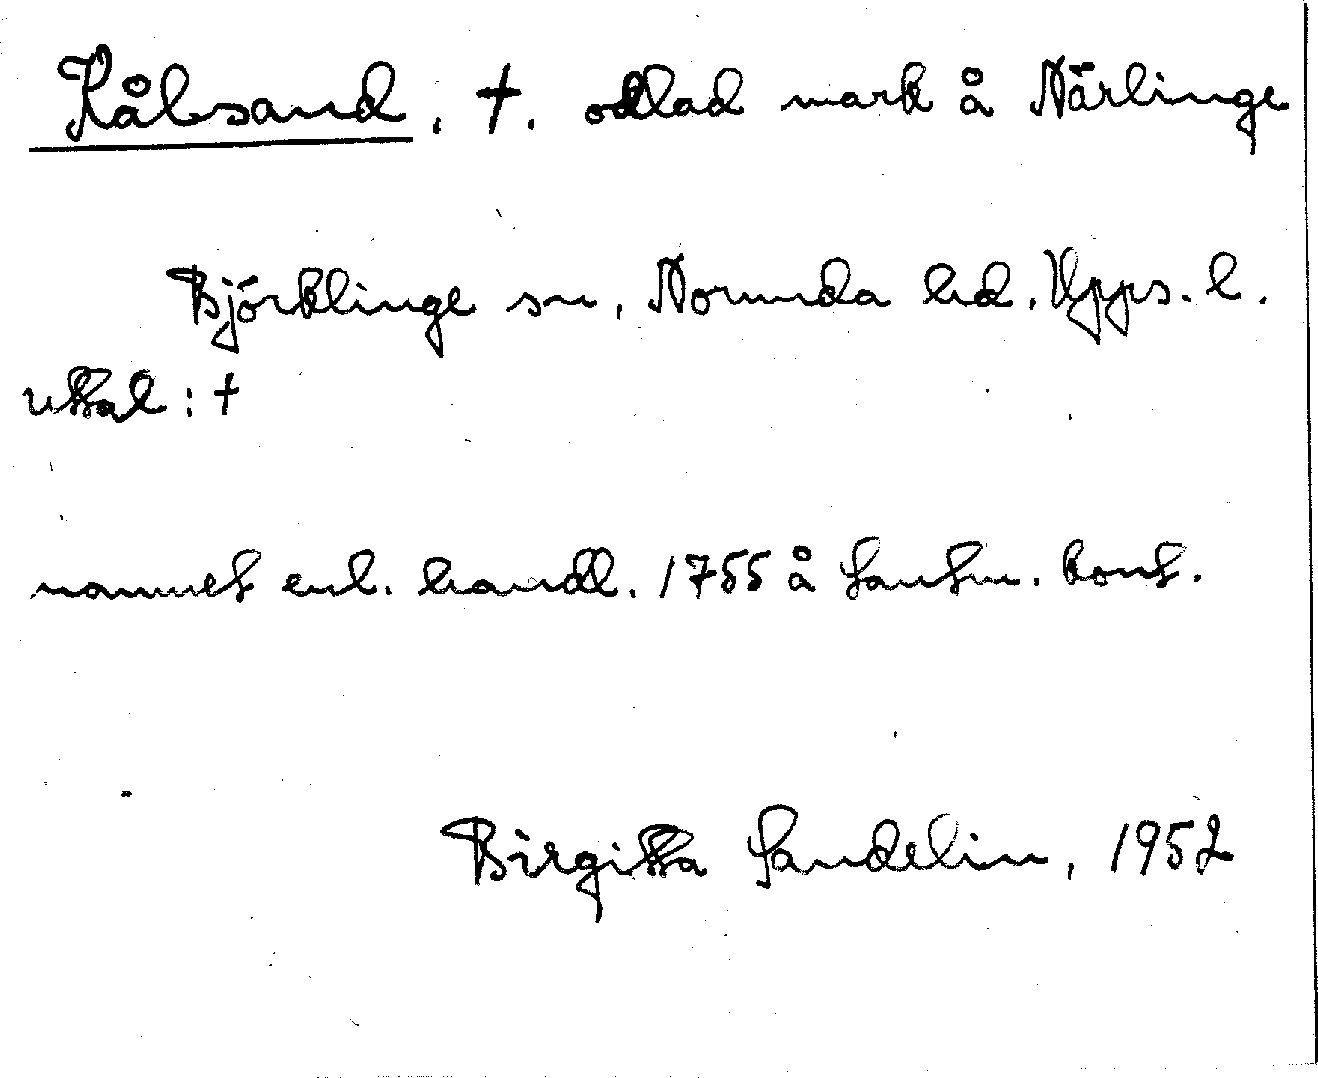 Kålsand, †. odlad mark å Närlinge
Björklinge sn, Norunda hd, Upps. l.
uttal: †
namnet enl. handl. 1755 å Lantm. kont.
Birgitta Sandelin, 1952